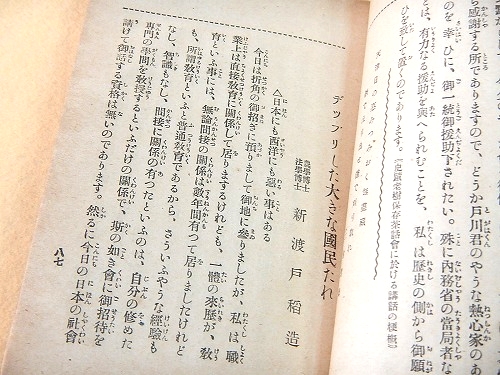 ら感謝する所でありますので、どうか戸川君のやうな熱心家のあ
のを幸ひに、御一統御援助下されたい。殊に内務省の當局者な
とは、有力なる援助を與へられむことを、私は歷史の側から御願
ひを致して置くのであります。(史蹟老樹保存茶話會に於ける講話の梗概)
デップリした大きな國民たれ
農學博士
法學博士
新渡戸稻造
△日本にも西洋にも惡い事はある
今日は折角の御招きに預りまして御地に參りましたが、私は職
業上は直接敎育に關係して居りまするけれども、一體の來歷が、敎
育といふ事には、無論間接の關係は數年間有つて居りましたけれど
も、所謂敎育といふと普通敎育であるから、さういふやうな經驗も
なし、智識もなし、間接に關係の有つたといふのは、自分の修めた
專門の學問を敎授するといふだけの關係で、斯の如き會に御招待を
請けて御話する資格は無いのであります。然るに今日の日本の社會
八七